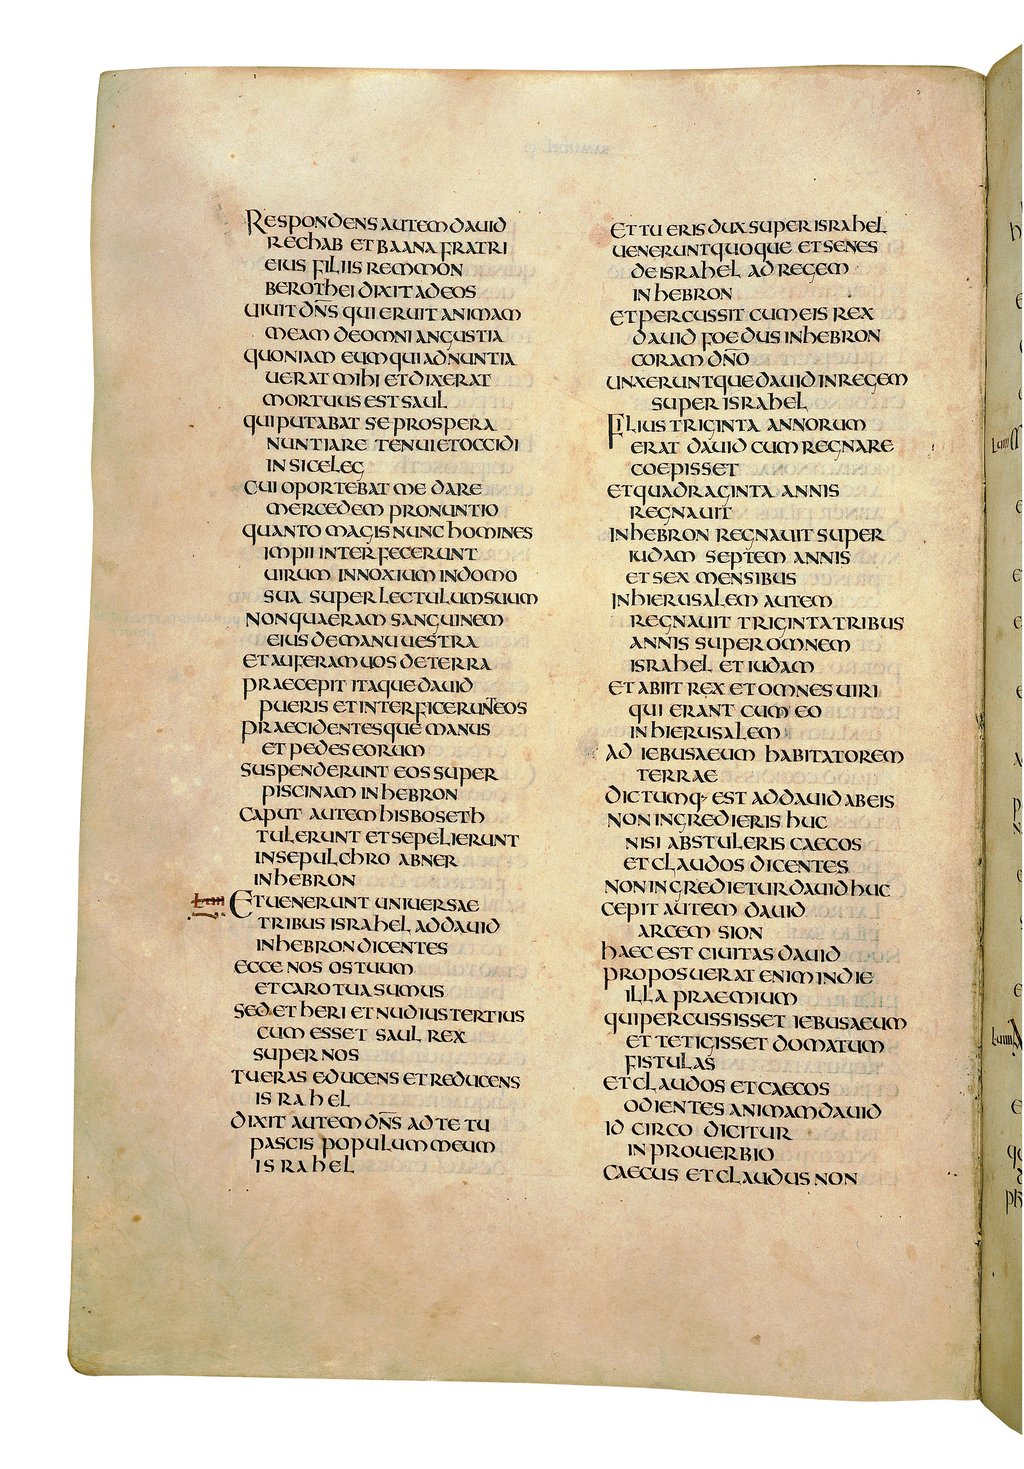 Respondens autem dauid
rechab et baana fratri
eius filiis remmon
berothei dixit ad eos
uiuit dn̅s qui eruit animam
meam de omni angustia
quoniam eum qui adnuntia
uerat mihi et dixerat
mortuus est saul
qui putabat se prospera
nuntiare tenui et occidi
in siceleg
cui oportebat me dare
mercedem pro nuntio
quanto magis nunc homines
impii interfecerunt
uirum innoxium in domo
sua super lectulum suum
non quaeram sanguinem
eius de manu uestra
et auferam uos de terra
praecepit itaque dauid
pueris et interficerunt eos
praecidentesque manus
et pedes eorum
suspenderunt eos super
piscinam in hebron
caput autem hisboseth
tulerunt et sepelierunt
in sepulchro abner
in hebron
Et uenerunt uniuersae
tribus israhel ad dauid
in hebron dicentes
ecce nos os tuum
et caro tua sumus
sed et heri et nudius tertius
cum esset saul rex
super nos
tu eras educens et reducens
israhel
dixit autem dn̅s ad te tu
pascis populum meum
israhel
et tu eris dux super israhel
uenerunt quoque et senes
de israhel ad regem
in hebron
et percussit cum eis rex
dauid foedus in hebron
coram dn̅o
unxeruntque dauid in regem
super israhel
Filius triginta annorum
erat dauid cum regnare
coepisset
et quadraginta annis
regnauit
in hebron regnauit super
iudam septem annis
et sex mensibus
in hierusalem autem
regnauit triginta tribus
annis super omnem
israhel et iudam
et abiit rex et omnes uiri
qui erant cum eo
in hierusalem
ad iebusaeum habitatorem
terrae
dictumq· est ad dauid ab eis
non ingredieris huc
nisi abstuleris caecos
et claudos dicentes
non ingredietur dauid huc
cepit autem dauid
arcem sion
haec est ciuitas dauid
proposuerat enim in die
illa praemium
qui percussisset iebusaeum
et tetigisset domatum
fistulas
et claudos et caecos
odientes animam dauid
id circo dicitur
in prouerbio
caecus et claudus non